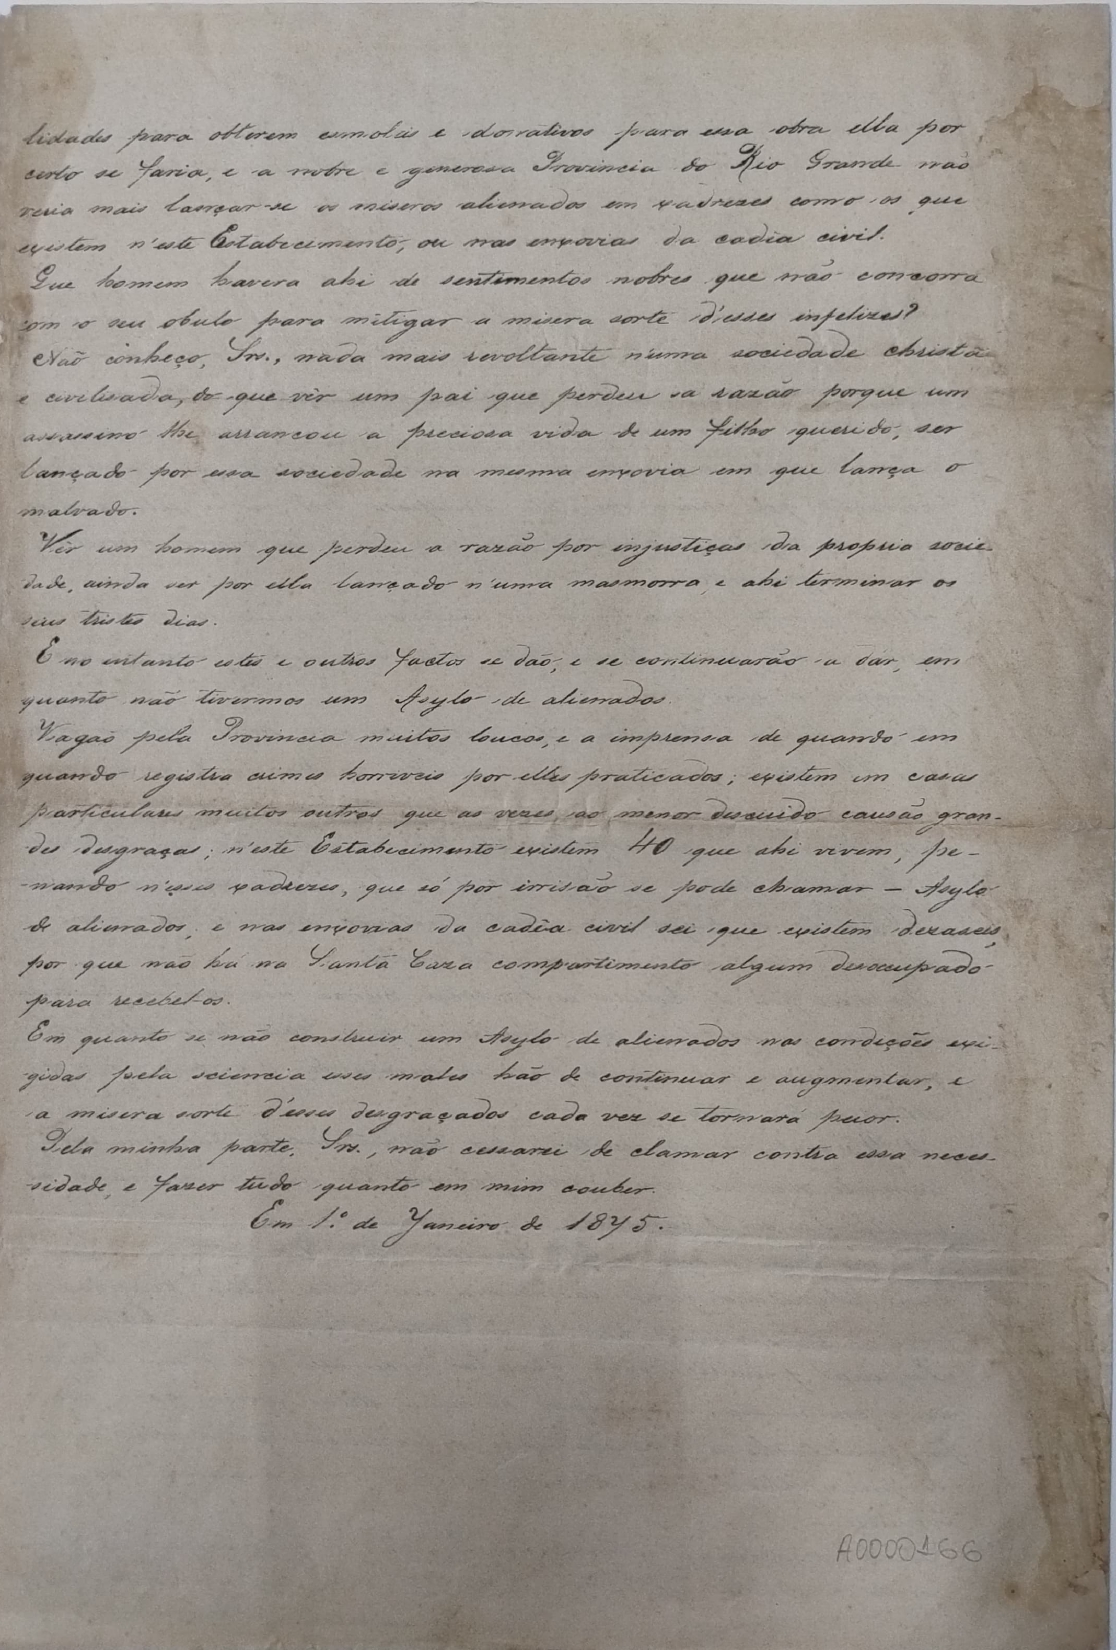 lidades para obterem esmolas e donativos para essa obra ella por
certo se faria, e a nobre e generosa Provincia do Rio Grande não
veria mais lançar-se os miseros alienados em xadrezes como os que
existem n'este Estabecimento, ou nas enxovias da cadia civil.
Que homem havera ahi de sentimentos nobres que não concorra
com o seu obulo para mitigar a misera sorte d'esses infelizes?
Não conheço, Srs., nada mais revoltante n'uma sociedade christã
e civilisada, do que vêr um pai que perdeu a razão porque um
assassino lhe arrancou a preciosa vida de um filho querido, ser
lançado por essa sociedade na mesma enxovia em que lança o
malvado.
Vêr um homem que perdeu a razão por injustiças da propria socie-
dade, ainda ser por ella lançado n'uma masmorra, e ahi terminar os
seus tristes dias.
E no entanto estes e outros factos se dão, e se continuarão a dar, em
quanto não tivermos um Asylo de alienados.
Vagão pela Provincia muitos loucos, e a imprensa de quando em
quando registra crimes horriveis por elles praticados; existem em casas
particulares muitos outros que as vezes ao menor descuido causão gran-
des desgraças; n'este Estabecimento existem 40 que ahi vivem, pe-
nando n'esses xadrezes, que só por irrisão se pode chamar — Asylo
de alienados, e nas enxovias da cadêa civil sei que existem dezaseis,
por que não há na Santa Caza compartimento algum desoccupado
para recebel-os.
Em quanto se não construir um Asylo de alienados nas condições exi-
gidas pela sciencia esses males hão de continuar e augmentar, e
a misera sorte d'esses desgraçados cada vez se tornará peior.
Pela minha parte, Srs., não cessarei de clamar contra essa neces-
sidade, e fazer tudo quanto em mim couber.
Em 1.º de Janeiro de 1875.
A0000166